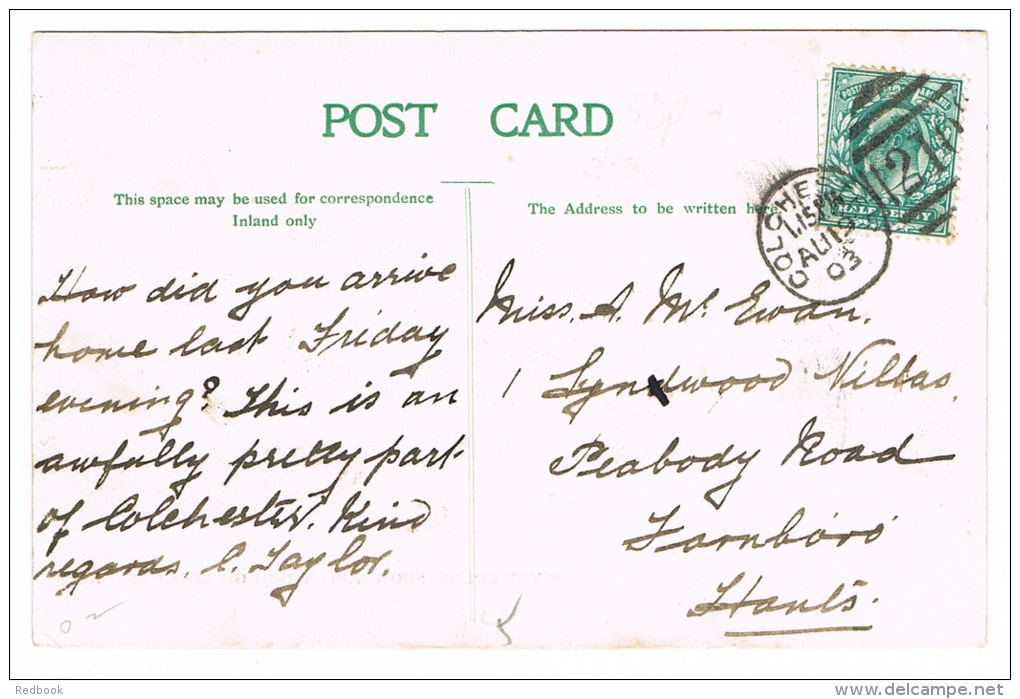 POST CARD
This space may be used for correspondence
Inland only
The Address to be written here
How did you arrive
home last Friday
evening? This is an
awfully pretty part
of Colchester. Kind
regards. C. Taylor.
Miss. A. Mc Ewan.
1 Lyndwood Villas.
Peabody Road
Farnboro'
Hants.
COLCHES
1.15 PM
AU 19
03
HALF PENNY
Redbook
delcampe.net